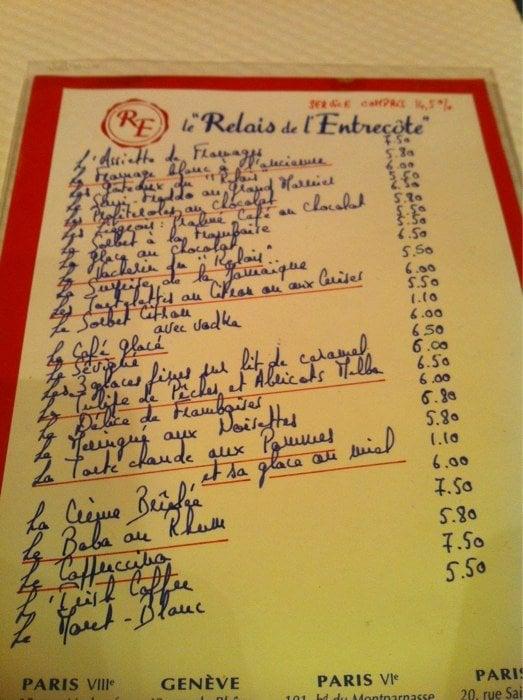 SERVICE COMPRIS 14,5%
RE le "Relais de l'Entrecôte"
L'Assiette de Fromages 7.50
Le Fromage blanc à l'ancienne 5.80
Les Gâteaux du "Relais" 6.00
Le Semi-Freddo au Grand Marnier
Les Profiteroles au Chocolat
Les Liégeois: Praliné Café ou Chocolat
Le Sorbet à la Framboise
La Glace au Chocolat
Le Vacherin du "Relais" 6.50
La Surprise de la Jamaïque
Les Tartelettes au Citron ou aux Cerises 5.50
Le Sorbet Citron
avec vodka
Le Café glacé
Le Sévigné
Les 3 glaces fines sur lit de caramel
La Tulipe de Pêches et Abricots Melba
Le Délice de Framboises
La Meringue aux Noisettes
La Tarte chaude aux Pommes
et sa glace au miel
La Crème Brûlée
Le Baba au Rhum
Le Cappuccino
L'Irish Coffee
Le Marc-Blanc
5.50
6.00
5.50
1.10
6.00
6.50
6.00
6.50
6.00
6.80
5.80
1.10
6.00
7.50
5.80
7.50
5.50
PARIS VIIIe GENÈVE PARIS VIe PARIS
101, bd du Montparnasse 20, rue Sai